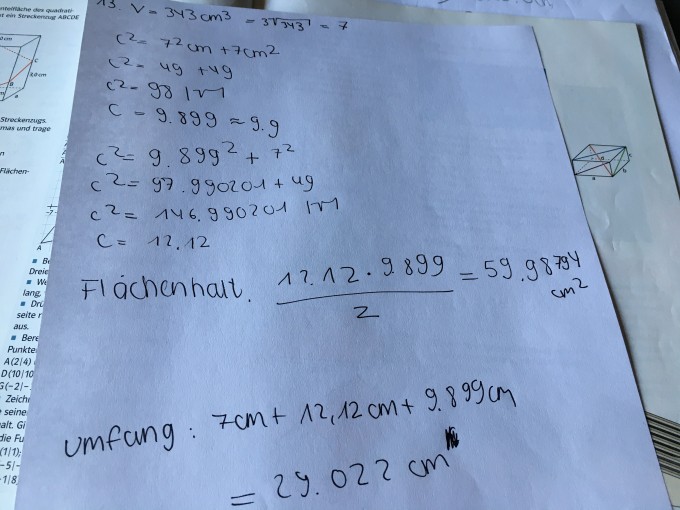 13. V = 343 cm³ = 3√343 = 7
c² = 7²cm + 7cm²
c² = 49 + 49
c² = 98 |√
c = 9.899 ≈ 9.9
c² = 9.899² + 7²
c² = 97.990201 + 49
c² = 146.990201 |√
c = 12,12
Flächenhalt. 12.12 · 9.899 / 2 = 59.98794 cm²
Umfang: 7cm + 12,12cm + 9.899cm
= 29.022 cm
ntelfläche des quadrati-
t ein Streckenzug ABCDE
Streckenzugs.
mas und trage
Flächen-
A
Dreie
We
lang,
Drü
seite r
aus.
Bere
Punkte
A(2|4)
D(10|10
G(-2|-
Zeich
seine
alt. Gi
die Fu
(1|1);
-5|-
-1|8)
a
b